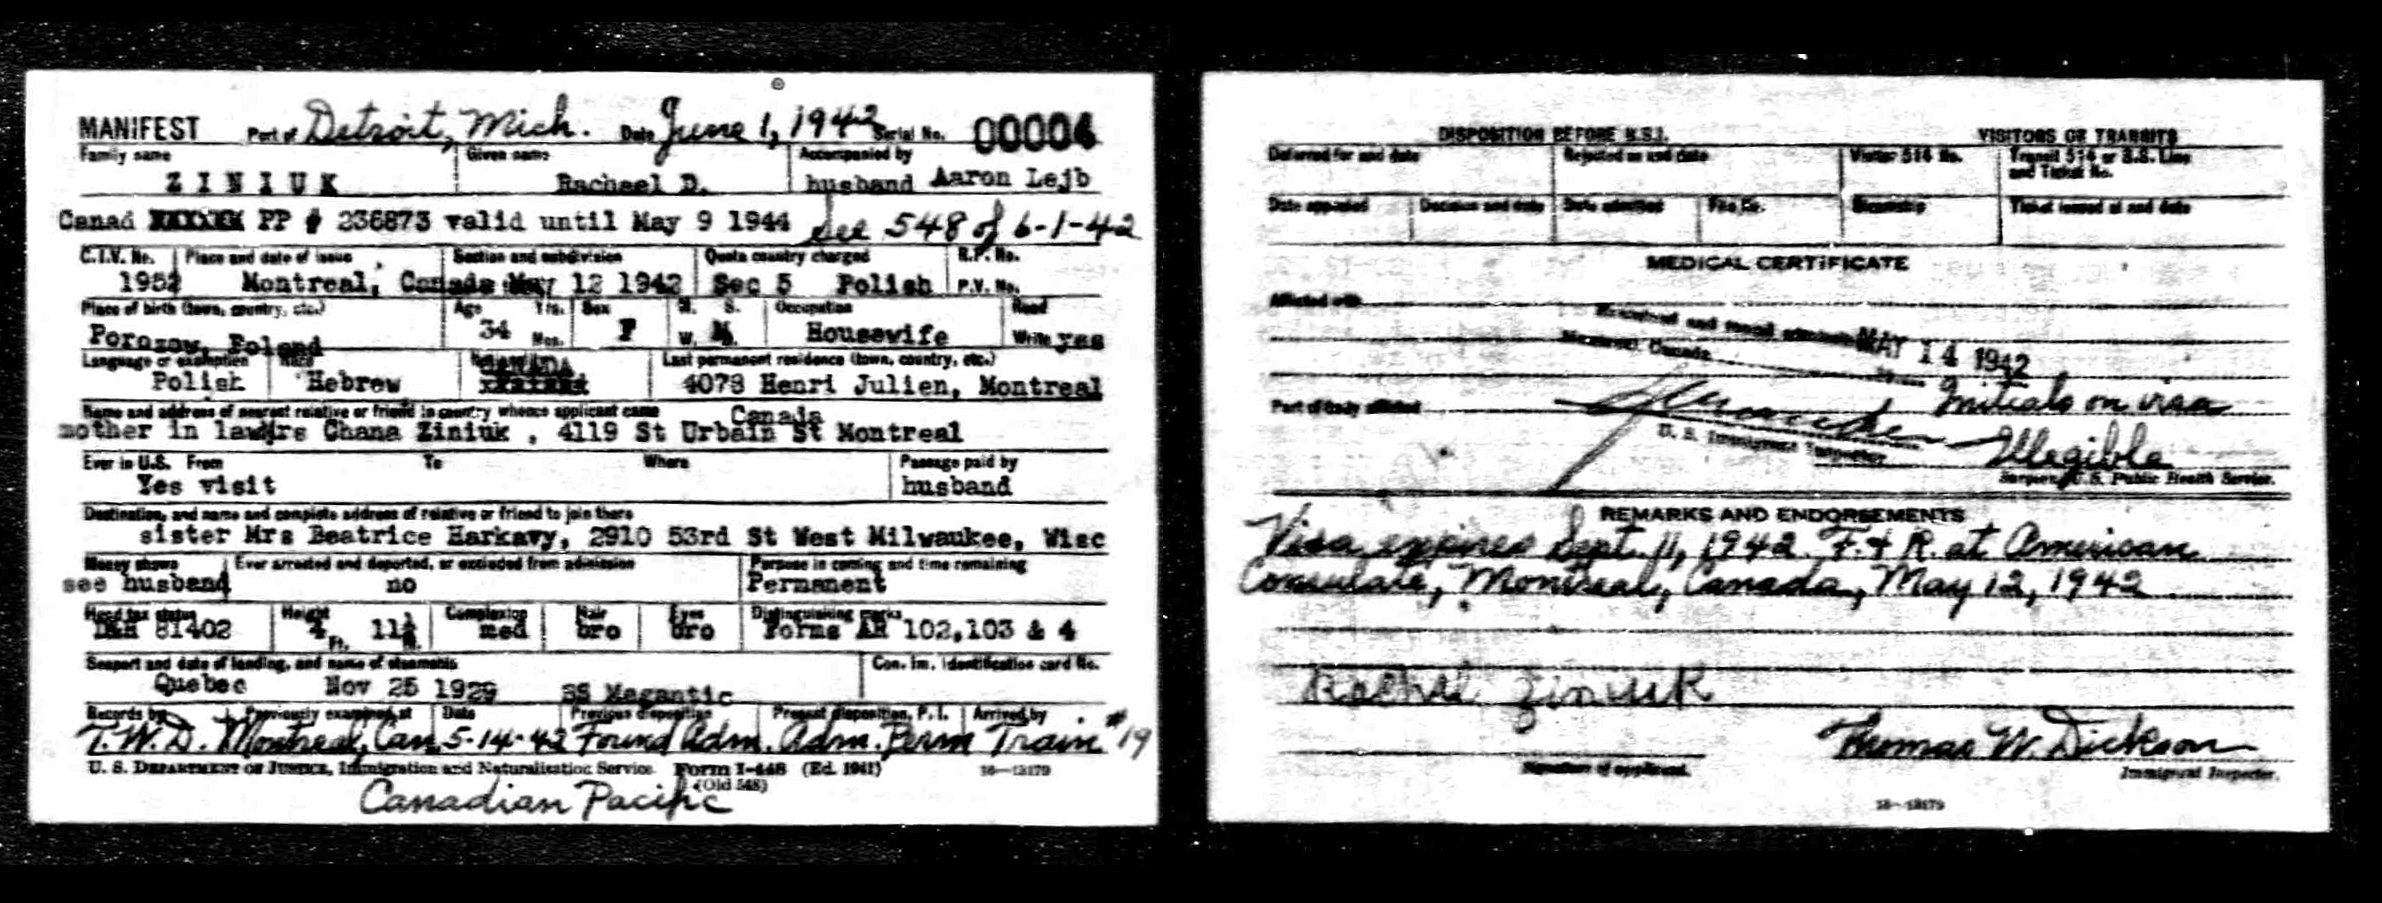 MANIFEST Port of Detroit, Mich. Date June 1, 1942 Serial No. 00004
Family name Given name Accompanied by
ZINIUK Rachael D. husband Aaron Lejb
Canad PP # 236873 valid until May 9 1944 see 548 of 6-1-42
C.I.V. No. Place and date of issue Section and subdivision Quota country charged R.P. No.
1952 Montreal, Canada May 12 1942 Sec 5 Polish P.V. No.
Place of birth (town, country, etc.) Age Yrs. Sex M. S. Occupation Read
Porozow, Poland 34 Mos. F W. D. Housewife Write yes
Language or exemption Race CANADA Last permanent residence (town, country, etc.)
Polish Hebrew 4078 Henri Julien, Montreal
Name and address of nearest relative or friend in country whence applicant came Canada
mother in law Mrs Chana Ziniuk , 4119 St Urbain St Montreal
Ever in U.S. From To Where Passage paid by
Yes visit husband
Destination, and name and complete address of relative or friend to join there
sister Mrs Beatrice Harkavy, 2910 53rd St West Milwaukee, Wisc
Money shown Ever arrested and deported, or excluded from admission Purpose in coming and time remaining
see husband no Permanent
Head tax status Height Complexion Hair Eyes Distinguishing marks
81402 4 Ft. 11½ In. med bro bro Forms AR 102,103 & 4
Seaport and date of landing, and name of steamship Con. Im. Identification card No.
Quebec Nov 25 1929 SS Megantic
Records by Previously examined at Date Previous disposition Present disposition, P. I. Arrived by
T.W.D. Montreal, Can 5-14-42 Found Adm. Adm. Perm Train #19
U. S. DEPARTMENT OF JUSTICE, Immigration and Naturalization Service. Form I-448 (Ed. 1941) 16—13179
(Old 548)
Canadian Pacific
DISPOSITION BEFORE B.S.I. VISITORS OR TRANSITS
Deferred for and date Rejected as and date Visitor 514 No. Transit 514 or S.S. Line
and Ticket No.
Date appealed Decision and date Date admitted File No. Steamship Ticket issued at and date
MEDICAL CERTIFICATE
Afflicted with
MAY 14 1942
Montreal, Canada
Part of body affected Initials on visa
U. S. Immigrant Inspector Illegible
Surgeon, U. S. Public Health Service.
REMARKS AND ENDORSEMENTS
Visa expires Sept. 11, 1942 F. & R. at American
Consulate, Montreal, Canada, May 12, 1942
Rachel Ziniuk
Thomas W. Dickson
Signature of applicant. Immigrant Inspector.
16—13179